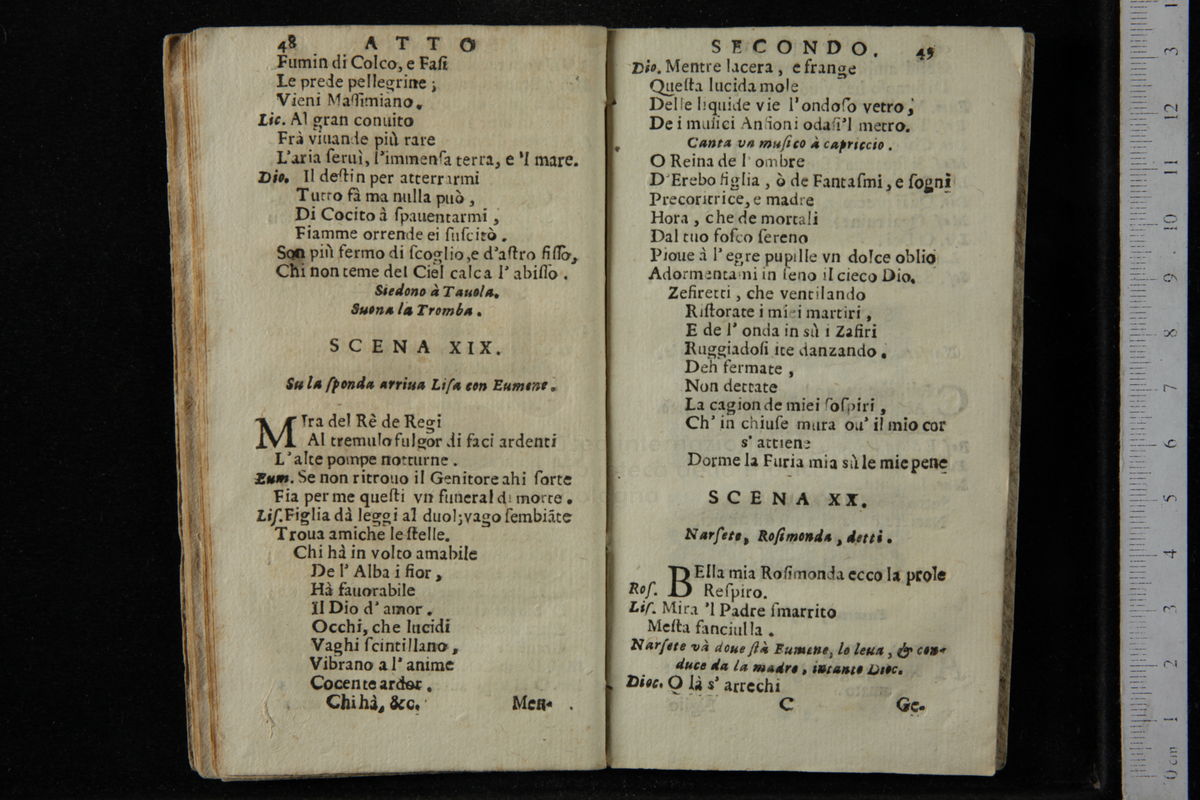 48 ATTO
Fumin di Colco, e Faſi
Le prede pellegrine;
Vieni Maſſimiano.
Lic. Al gran conuito
Frà viuande più rare
L'aria ſeruì, l'immenſa terra, e 'l mare.
Dio. Il deſtin per atterrarmi
Tutto fà ma nulla può,
Di Cocito à ſpauentarmi,
Fiamme orrende ei ſuſcitò.
Son più fermo di ſcoglio, e d'aſtro fiſſo,
Chi non teme del Ciel calca l' abiſſo.
Siedono à Tauola.
Suona la Tromba.
SCENA XIX.
Su la ſponda arriua Liſa con Eumene.
MIra del Rè de Regi
Al tremulo fulgor di faci ardenti
L'alte pompe notturne.
Eum. Se non ritrouo il Genitore ahi ſorte
Fia per me queſti vn funeral di morte.
Liſ. Figlia dà leggi al duol; vago ſembiãte
Troua amiche le ſtelle.
Chi hà in volto amabile
De l' Alba i fior,
Hà fauorabile
Il Dio d' amor.
Occhi, che lucidi
Vaghi ſcintillano,
Vibrano a l' anime
Cocente ardor.
Chi hà, &c.
Men-
SECONDO. 49
Dio. Mentre lacera, e frange
Queſta lucida mole
Delle liquide vie l'ondoſo vetro,
De i muſici Anfioni odaſi'l metro.
Canta vn muſico à capriccio.
O Reina de l' ombre
D'Erebo figlia, ò de Fantaſmi, e ſogni
Precorritrice, e madre
Hora, che de mortali
Dal tuo foſco ſereno
Pioue à l' egre pupille vn dolce oblio
Adormentami in ſeno il cieco Dio.
Zefiretti, che ventilando
Riſtorate i miei martiri,
E de l' onda in sù i Zafiri
Ruggiadoſi ite danzando.
Deh fermate,
Non dettate
La cagion de miei ſoſpiri,
Ch' in chiuſe mura ou' il mio cor
s' attiene
Dorme la Furia mia sù le mie pene
SCENA XX.
Narſete, Roſimonda, detti.
BElla mia Roſimonda ecco la prole
Roſ. Reſpiro.
Liſ. Mira 'l Padre ſmarrito
Meſta fanciulla.
Narſete và doue ſtà Eumene, lo leua, & con-
duce da la madre, intanto Dioc.
Dioc. O là s' arrechi
C
Ge-